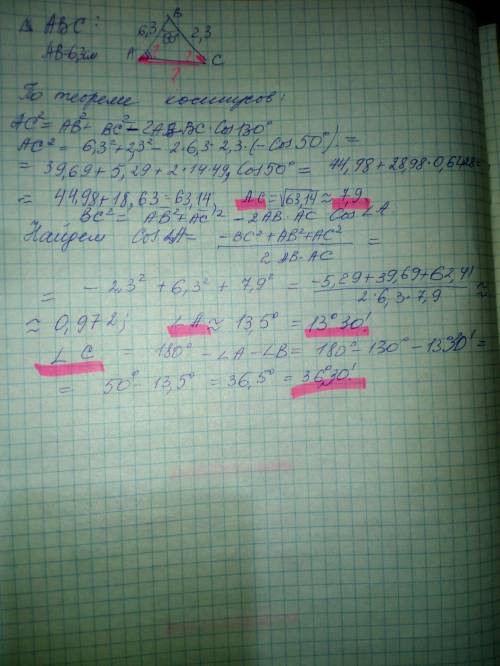 Δ ABC:
B
6,3 2,3
AB=6,3см
A C
?
По теореме косинусов:
AC² = AB² + BC² - 2AB·BC·Cos130°
AC² = 6,3² + 2,3² - 2·6,3·2,3·(-Cos50°) =
= 39,69 + 5,29 + 2·14,49·Cos50° = 44,98 + 28,98·0,6428=
= 44,98 + 18,63 = 63,14 AC = √63,14 ≈ 7,9
BC² = AB² + AC² - 2AB·AC Cos∠A
Найдем Cos∠A = -BC² + AB² + AC² / 2AB·AC =
= -2,3² + 6,3² + 7,9² = -5,29 + 39,69 + 62,41 / 2·6,3·7,9 ≈
≈ 0,972; ∠A ≈ 13,5° = 13°30'
∠C = 180° - ∠A - ∠B = 180° - 130° - 13°30' =
= 50° - 13,5° = 36,5° = 36°30'